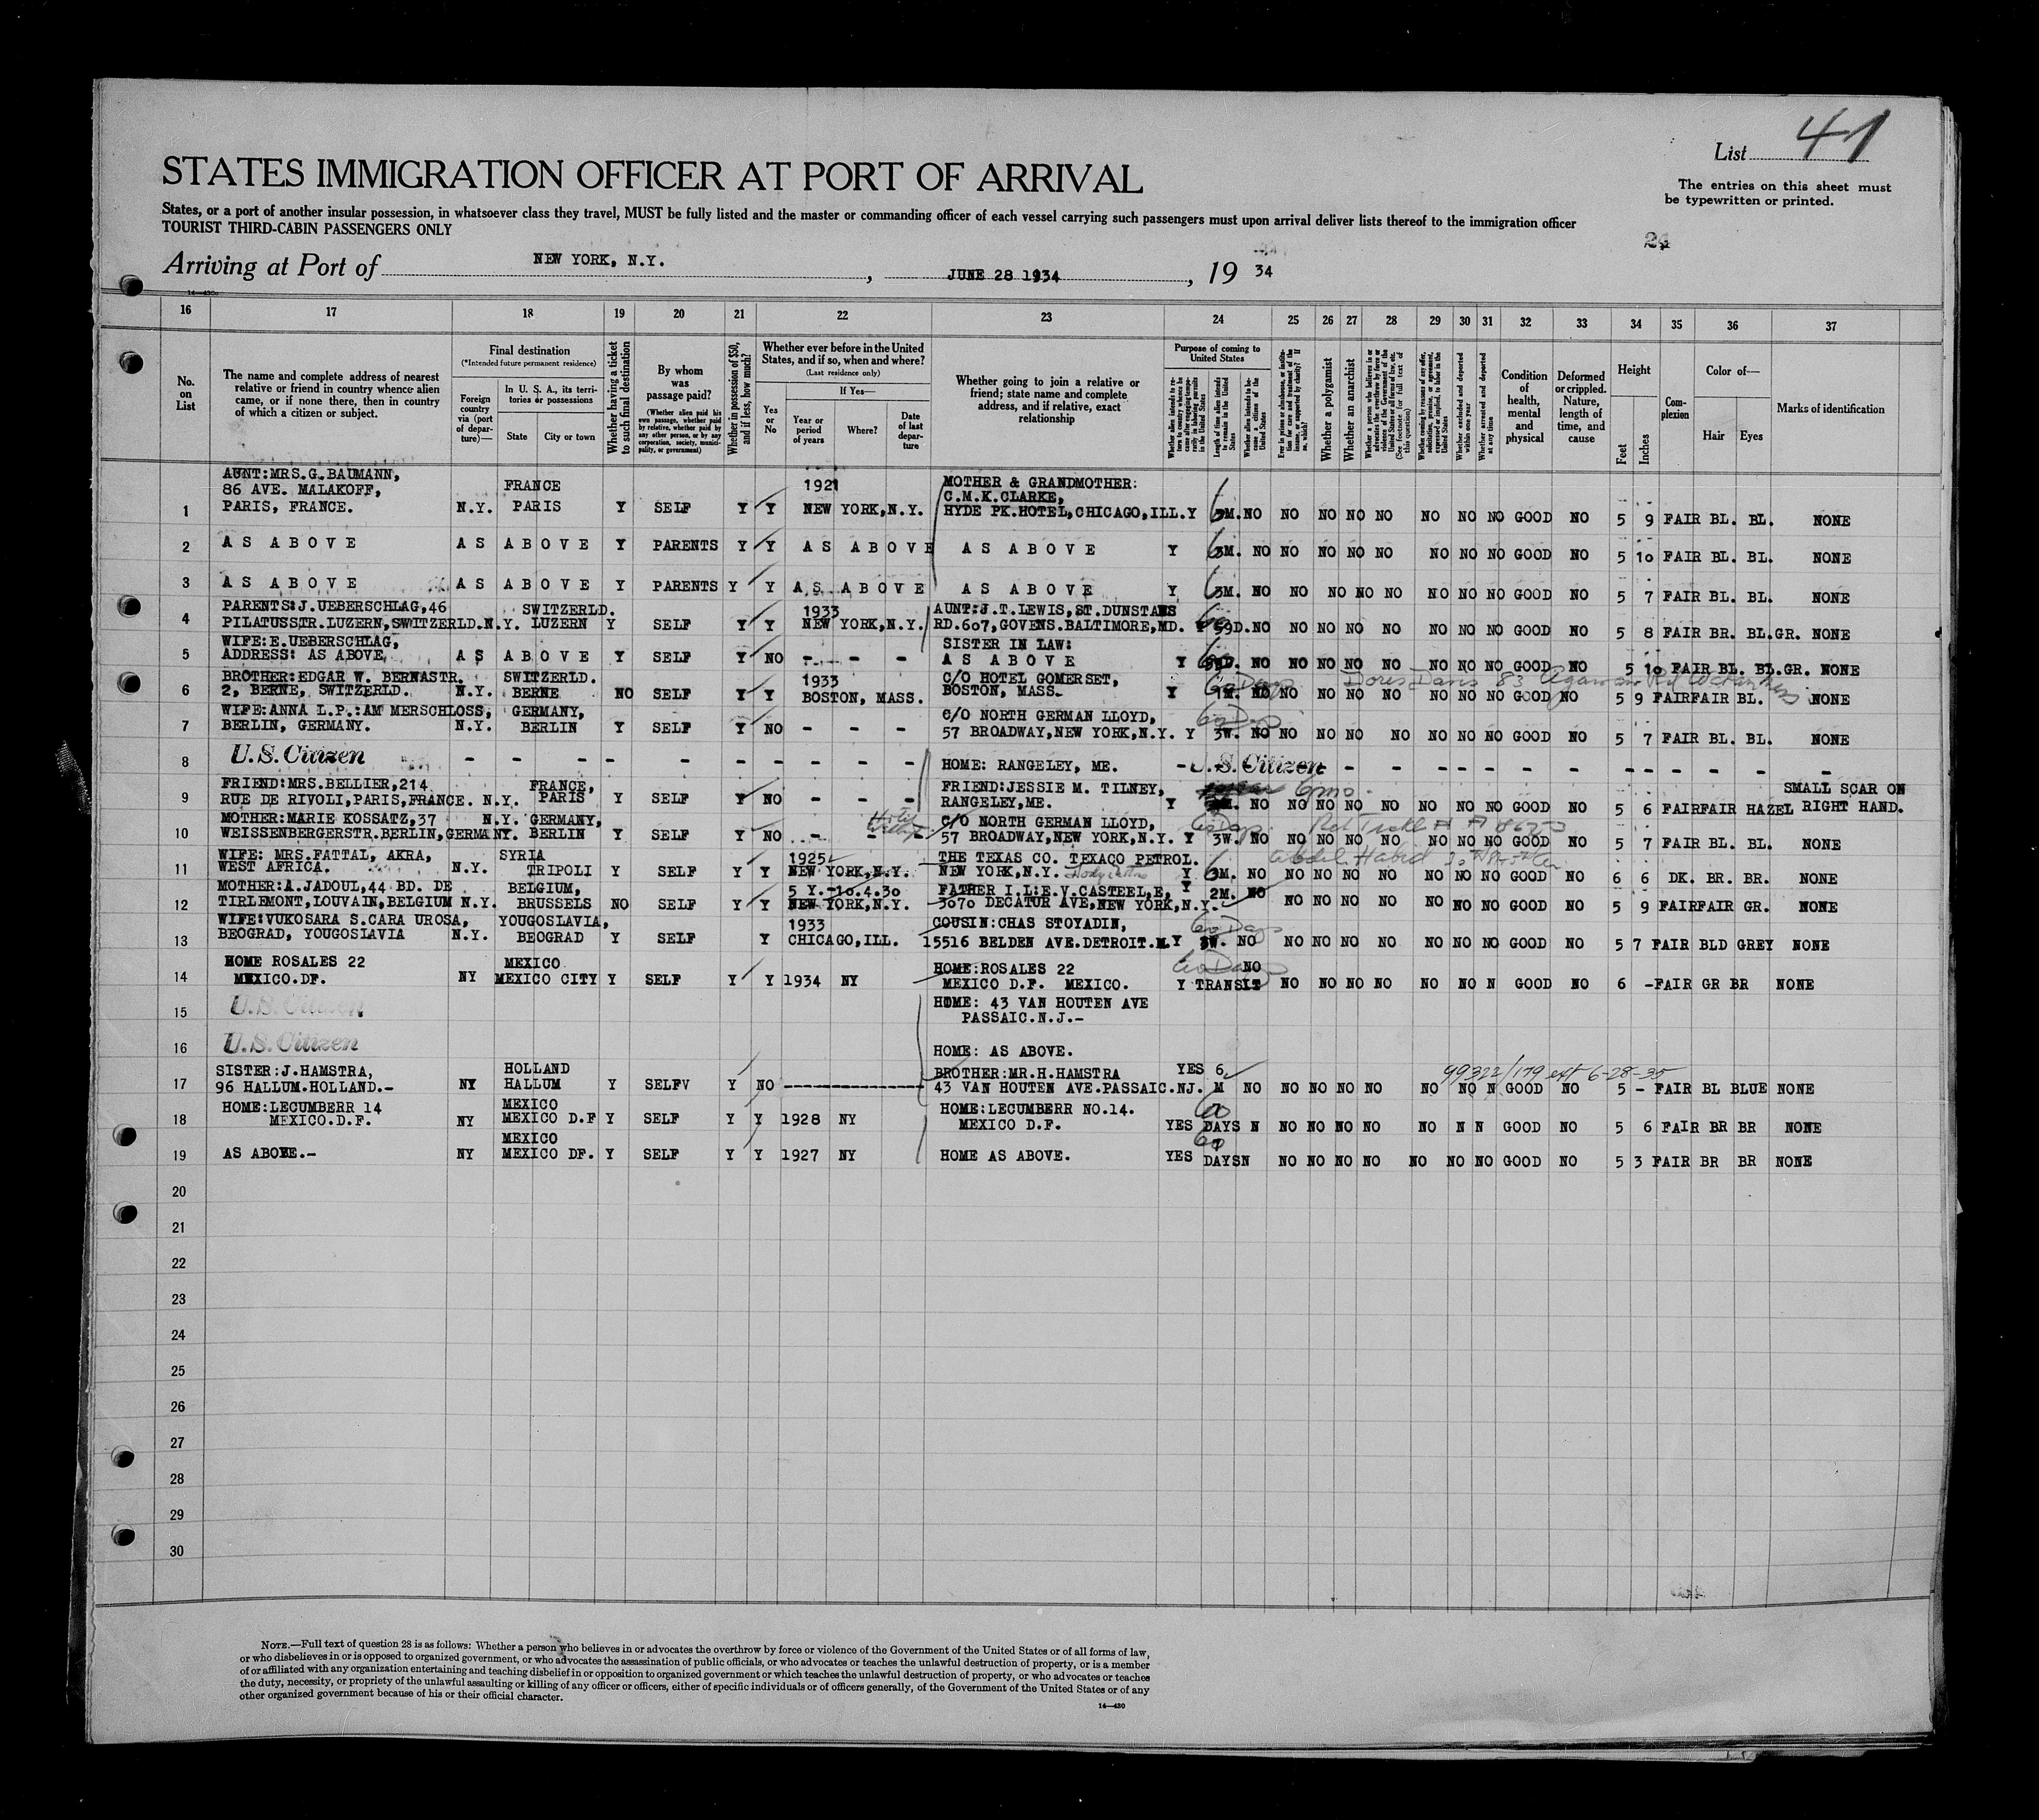 List 41
STATES IMMIGRATION OFFICER AT PORT OF ARRIVAL
The entries on this sheet must
be typewritten or printed.
States, or a port of another insular possession, in whatsoever class they travel, MUST be fully listed and the master or commanding officer of each vessel carrying such passengers must upon arrival deliver lists thereof to the immigration officer
TOURIST THIRD-CABIN PASSENGERS ONLY
Arriving at Port of NEW YORK, N.Y., JUNE 28 1934, 19 34
14—430
16 17 18 19 20 21 22 23 24 25 26 27 28 29 30 31 32 33 34 35 36 37
No. on List
The name and complete address of nearest relative or friend in country whence alien came, or if none there, then in country of which a citizen or subject.
Final destination
(*Intended future permanent residence)
Foreign country via (port of departure)—
In U. S. A., its territories or possessions
State
City or town
Whether having a ticket to such final destination
By whom was passage paid?
(Whether alien paid his own passage, whether paid by relative, whether paid by any other person, or by any corporation, society, municipality, or government)
Whether in possession of $50, and if less, how much?
Whether ever before in the United States, and if so, when and where?
(Last residence only)
Yes or No
If Yes—
Year or period of years
Where?
Date of last departure
Whether going to join a relative or friend; state name and complete address, and if relative, exact relationship
Purpose of coming to United States
Whether alien intends to return to country whence he came after engaging temporarily in laboring pursuits in the United States
Length of time alien intends to remain in the United States
Whether alien intends to become a citizen of the United States
Ever in prison or almshouse, or institution for care and treatment of the insane, or supported by charity? If so, which?
Whether a polygamist
Whether an anarchist
Whether a person who believes in or advocates the overthrow by force or violence of the Government of the United States or of all forms of law, etc. (See footnote for full text of this question)
Whether coming by reason of any offer, solicitation, promise, or agreement, expressed or implied, to labor in the United States
Whether excluded and deported within one year
Whether arrested and deported at any time
Condition of health, mental and physical
Deformed or crippled. Nature, length of time, and cause
Height
Feet
Inches
Complexion
Color of—
Hair
Eyes
Marks of identification
AUNT:MRS.G.BAUMANN,
86 AVE. MALAKOFF, FRANCE 1921 MOTHER & GRANDMOTHER:
C.M.K.CLARKE,
1 PARIS, FRANCE. N.Y. PARIS Y SELF Y Y NEW YORK,N.Y. HYDE PK.HOTEL,CHICAGO,ILL. Y 6 M. NO NO NO NO NO NO NO NO GOOD NO 5 9 FAIR BL. BL. NONE
2 AS ABOVE AS ABOVE Y PARENTS Y Y AS ABOVE AS ABOVE Y 6 3M. NO NO NO NO NO NO NO NO GOOD NO 5 10 FAIR BL. BL. NONE
3 AS ABOVE AS ABOVE Y PARENTS Y Y AS ABOVE AS ABOVE Y 6 3M. NO NO NO NO NO NO NO NO GOOD NO 5 7 FAIR BL. BL. NONE
PARENTS:J.UEBERSCHLAG,46 SWITZERLD. 1933 AUNT:J.T.LEWIS,ST.DUNSTANS
4 PILATUSSTR.LUZERN,SWITZERLD. N.Y. LUZERN Y SELF Y Y NEW YORK,N.Y. RD.607,GOVENS.BALTIMORE,MD. 59D. NO NO NO NO NO NO NO NO GOOD NO 5 8 FAIR BR. BL.GR. NONE
WIFE:E.UEBERSCHLAG, SISTER IN LAW:
5 ADDRESS: AS ABOVE, AS ABOVE Y SELF Y NO - - - AS ABOVE Y NO NO NO NO NO NO NO NO GOOD NO 5 10 FAIR BL. BL.GR. NONE
BROTHER:EDGAR W. BERNASTR. SWITZERLD. 1933 C/O HOTEL GOMERSET, 60 Days Dores Davis 83
6 2, BERNE, SWITZERLD. N.Y. BERNE NO SELF Y Y BOSTON, MASS. BOSTON, MASS. Y NO NO NO NO NO NO NO NO GOOD NO 5 9 FAIR FAIR BL. NONE
WIFE:ANNA L.P.:AM MERSCHLOSS, GERMANY, C/O NORTH GERMAN LLOYD, 60 Days
7 BERLIN, GERMANY. N.Y. BERLIN Y SELF Y NO - - - 57 BROADWAY,NEW YORK,N.Y. Y 3W. NO NO NO NO NO NO NO NO GOOD NO 5 7 FAIR BL. BL. NONE
8 U.S. Citizen - - - - - - - - - HOME: RANGELEY, ME. U.S. Citizen - - - - - - - - - - - - -
FRIEND:MRS.BELLIER,214 FRANCE, FRIEND:JESSIE M. TILNEY, 6mo. SMALL SCAR ON
9 RUE DE RIVOLI,PARIS,FRANCE. N.Y. PARIS Y SELF Y NO - - - RANGELEY,ME. Y NO NO NO NO NO NO NO NO GOOD NO 5 6 FAIR FAIR HAZEL RIGHT HAND.
MOTHER:MARIE KOSSATZ,37 N.Y. GERMANY, C/O NORTH GERMAN LLOYD, 60 Days
10 WEISSENBERGERSTR.BERLIN,GERMANY. BERLIN Y SELF Y NO - - 57 BROADWAY,NEW YORK,N.Y. Y 3W. NO NO NO NO NO NO NO NO GOOD NO 5 7 FAIR BL. BL. NONE
WIFE: MRS.FATTAL, AKRA, SYRIA 1925 THE TEXAS CO. TEXACO PETROL. Abdel Habid
11 WEST AFRICA. N.Y. TRIPOLI Y SELF Y Y NEW YORK,N.Y. NEW YORK,N.Y. Y 6 M. NO NO NO NO NO NO NO NO GOOD NO 6 6 DK. BR. BR. NONE
MOTHER:A.JADOUL,44 BD. DE BELGIUM, 5 Y.-10.4.30 FATHER I.L:E.V.CASTEEL,E, Y
12 TIRLEMONT,LOUVAIN,BELGIUM N.Y. BRUSSELS NO SELF Y Y NEW YORK,N.Y. 3070 DECATUR AVE,NEW YORK,N.Y. 2M. NO NO NO NO NO NO NO NO GOOD NO 5 9 FAIR FAIR GR. NONE
WIFE:VUKOSARA S.CARA UROSA, YOUGOSLAVIA, 1933 COUSIN:CHAS STOYADIN, 60 Days
13 BEOGRAD, YOUGOSLAVIA N.Y. BEOGRAD Y SELF Y CHICAGO,ILL. 15516 BELDEN AVE.DETROIT.M. Y 3W. NO NO NO NO NO NO NO NO GOOD NO 5 7 FAIR BLD GREY NONE
HOME ROSALES 22 MEXICO HOME:ROSALES 22 60 Days NO
14 MEXICO.DF. NY MEXICO CITY Y SELF Y Y 1934 NY MEXICO D.F. MEXICO. Y TRANSIT NO NO NO NO NO NO N GOOD NO 6 - FAIR GR BR NONE
15 U.S. Citizen HOME: 43 VAN HOUTEN AVE
PASSAIC.N.J.-
16 U.S. Citizen HOME: AS ABOVE.
SISTER:J.HAMSTRA, HOLLAND BROTHER:MR.H.HAMSTRA YES 6 99322/179 ext 6-28-35
17 96 HALLUM.HOLLAND.- NY HALLUM Y SELFV Y NO --------------- 43 VAN HOUTEN AVE.PASSAIC.NJ. M NO NO NO NO NO NO NO N GOOD NO 5 - FAIR BL BLUE NONE
HOME:LECUMBERR 14 MEXICO HOME:LECUMBERR NO.14. 60
18 MEXICO.D.F. NY MEXICO D.F Y SELF Y Y 1928 NY MEXICO D.F. YES DAYS N NO NO NO NO NO N N GOOD NO 5 6 FAIR BR BR NONE
MEXICO 60
19 AS ABOVE.- NY MEXICO DF. Y SELF Y Y 1927 NY HOME AS ABOVE. YES DAYS N NO NO NO NO NO NO NO GOOD NO 5 3 FAIR BR BR NONE
20
21
22
23
24
25
26
27
28
29
30
NOTE.—Full text of question 28 is as follows: Whether a person who believes in or advocates the overthrow by force or violence of the Government of the United States or of all forms of law,
or who disbelieves in or is opposed to organized government, or who advocates the assassination of public officials, or who advocates or teaches the unlawful destruction of property, or is a member
of or affiliated with any organization entertaining and teaching disbelief in or opposition to organized government or which teaches the unlawful destruction of property, or who advocates or teaches
the duty, necessity, or propriety of the unlawful assaulting or killing of any officer or officers, either of specific individuals or of officers generally, of the Government of the United States or of any
other organized government because of his or their official character.
14—430